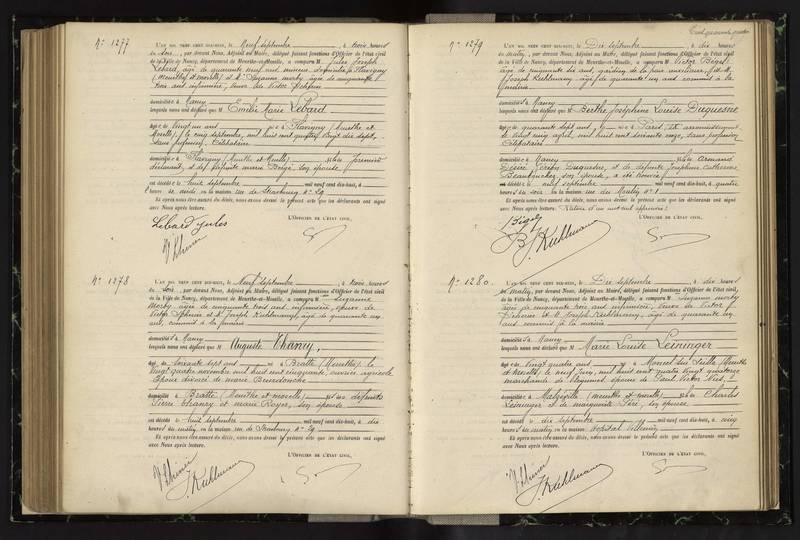 Nº 1277
L'AN MIL NEUF CENT DIX-HUIT, le Neuf septembre, à trois heures
du soir, par devant Nous, Adjoint au Maire, délégué faisant fonctions d'Officier de l'état civil
de la Ville de Nancy, département de Meurthe-et-Moselle, a comparu M Jules Joseph
Lebard, âgé de quarante neuf ans, mineur, domicilié à Flavigny
(Meurthe et Moselle) et M Suzanne Morby âgée de cinquante
trois ans infirmière, veuve de Victor
domicilié à Nancy
lesquels nous ont déclaré que M Emilie Marie Lebard
âgé de vingt un ans né à Flavigny (Meurthe et
Moselle), le cinq septembre, mil huit cent quatre vingt dix sept,
sans profession, Célibataire
domicilié à Flavigny (Meurthe et Moselle) fille du premier
déclarant, et de défunte Marie son épouse
est décédé le huit septembre mil neuf cent dix-huit, à
heures de en la maison rue de Strasbourg nº 29
Et après nous être assuré du décès, nous avons dressé le présent acte que les déclarants ont signé
avec Nous après lecture.
L'OFFICIER DE L'ÉTAT CIVIL,
Lebard Jules
Nº 1278
L'AN MIL NEUF CENT DIX-HUIT, le Neuf septembre, à trois heures
du soir, par devant Nous, Adjoint au Maire, délégué faisant fonctions d'Officier de l'état civil
de la Ville de Nancy, département de Meurthe-et-Moselle, a comparu M Suzanne
Morby, âgée de cinquante trois ans, infirmière, veuve de
Victor et M Joseph Kuhlmann, âgé de quarante un
ans, commis à la mairie
domicilié à Nancy
lesquels nous ont déclaré que M Auguste Thanry,
âgé de soixante sept ans né à Bratte (Moselle), le
vingt quatre novembre mil huit cent cinquante, ouvrier agricole
Epoux divorcé de Marie
domicilié à Bratte (Meurthe et Moselle) fils des défunts
Pierre Thanry et Marie Royer, son épouse
est décédé le huit septembre mil neuf cent dix-huit, à dix
heures du matin, en la maison rue de Strasbourg nº 29
Et après nous être assuré du décès, nous avons dressé le présent acte que les déclarants ont signé
avec Nous après lecture.
L'OFFICIER DE L'ÉTAT CIVIL,
J. Kuhlmann
Nº 1279
L'AN MIL NEUF CENT DIX-HUIT, le Dix septembre, à dix heures
du matin, par devant Nous, Adjoint au Maire, délégué faisant fonctions d'Officier de l'état civil
de la Ville de Nancy, département de Meurthe-et-Moselle, a comparu M Victor Bigel
âgé de cinquante six ans, gardien de la paix auxiliaire, et M
Joseph Kuhlmann, âgé de quarante un ans commis à la
mairie
domicilié à Nancy
lesquels nous ont déclaré que M Berthe Joséphine Louise Duquesne
âgé de quarante sept ans, née à Paris
le vingt cinq avril, mil huit cent soixante onze, sans profession
Célibataire
domicilié à Nancy fille de Armand
Désiré Duquesne, et de défunte Joséphine Catherine
son épouse, a été trouvée
décédé le neuf septembre mil neuf cent dix-huit, à quatre
heures du soir en la maison rue du nº 1
Et après nous être assuré du décès, nous avons dressé le présent acte que les déclarants ont signé
avec Nous après lecture.
L'OFFICIER DE L'ÉTAT CIVIL,
Bigel
J. Kuhlmann
Nº 1280
L'AN MIL NEUF CENT DIX-HUIT, le Dix septembre, à dix heures
du matin, par devant Nous, Adjoint au Maire, délégué faisant fonctions d'Officier de l'état civil
de la Ville de Nancy, département de Meurthe-et-Moselle, a comparu M Suzanne Morby
âgée de cinquante trois ans infirmière, veuve de Victor
et M Joseph Kuhlmann, âgé de quarante un
ans commis à la mairie
domicilié à Nancy
lesquels nous ont déclaré que M Marie Louise Leininger
âgé de vingt quatre ans née à Moncel sur Seille, Meurthe
et Moselle, le neuf juin, mil huit cent quatre vingt quatorze
marchande de légumes, épouse de Paul Victor
domicilié à Malzéville (Meurthe et Moselle) fille de Charles
Leininger et de Marguerite son épouse
est décédé le dix septembre mil neuf cent dix-huit, à cinq
heures du matin en la maison hôpital Villemin
Et après nous être assuré du décès, nous avons dressé le présent acte que les déclarants ont signé
avec Nous après lecture.
L'OFFICIER DE L'ÉTAT CIVIL,
J. Kuhlmann